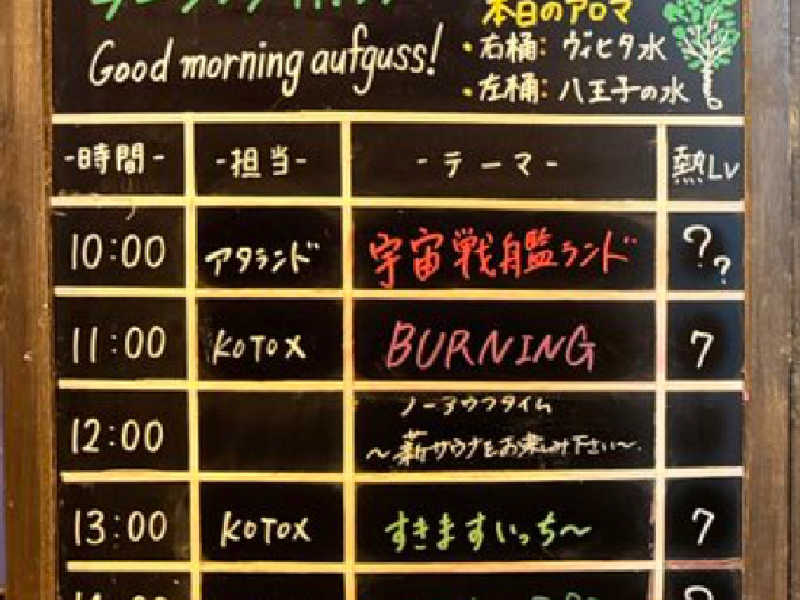 本日のアロマ
Good morning aufguss!
・右桶: ヴィヒタ水
・左桶: 八王子の水
-時間- -担当- -テーマ- 熱Lv
10:00 アタランド 宇宙戦艦ランド ??
11:00 KOTOX BURNING 7
12:00 ノーアウフタイム
～薪サウナをお楽しみ下さい～
13:00 KOTOX すきますいっち～ 7